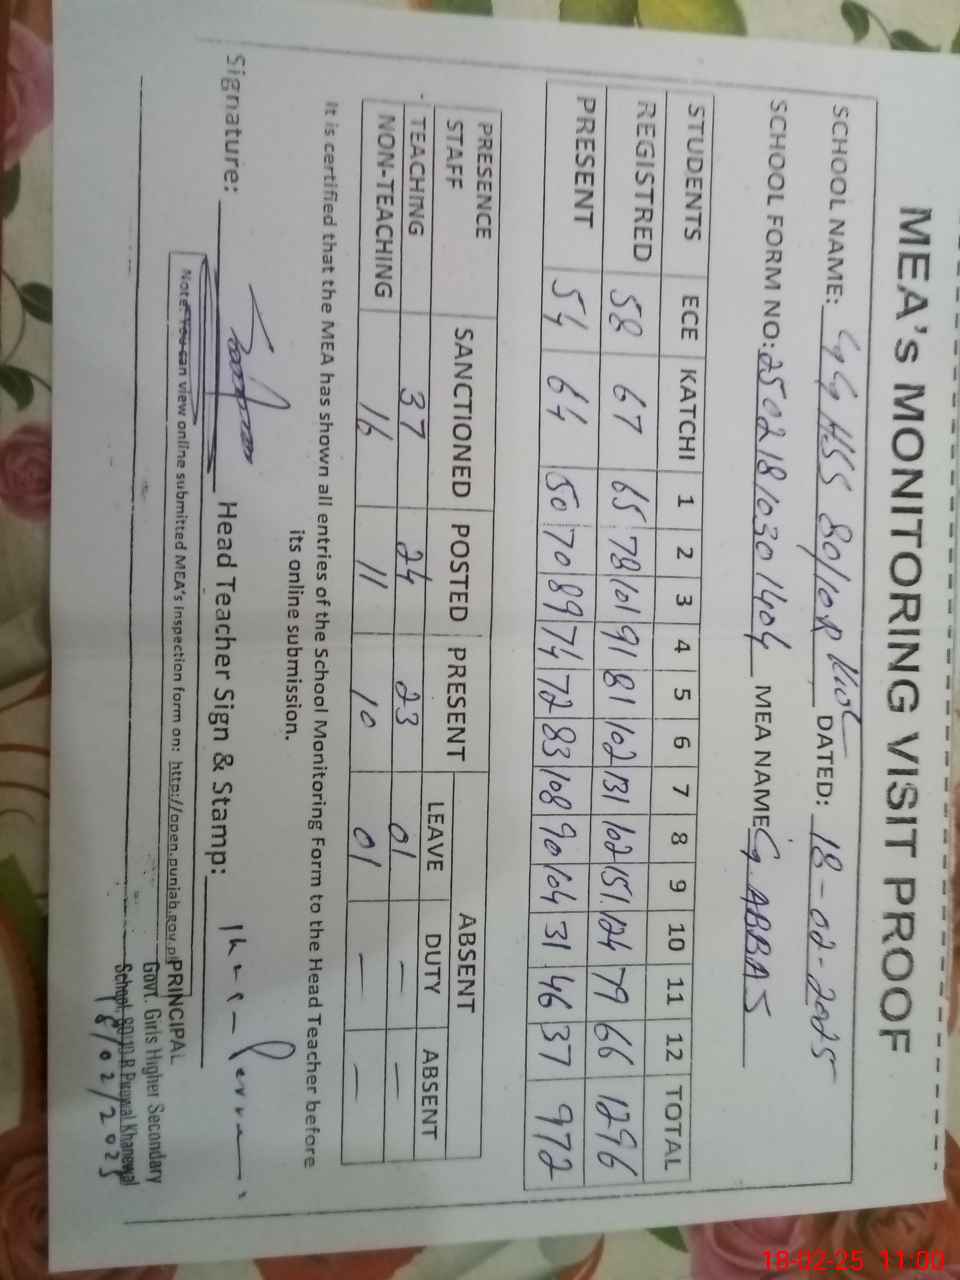 MEA's MONITORING VISIT PROOF
SCHOOL NAME: GGHSS 80/10R DATED: 18-02-2025
SCHOOL FORM NO: 25021810301404 MEA NAME G. ABBAS
STUDENTS ECE KATCHI 1 2 3 4 5 6 7 8 9 10 11 12 TOTAL
REGISTRED 58 67 65 78 101 91 81 102 131 102 151 124 79 66 1296
PRESENT 54 64 50 70 89 74 72 83 108 90 104 31 46 37 972
PRESENCE SANCTIONED POSTED PRESENT ABSENT
STAFF LEAVE DUTY ABSENT
TEACHING 37 24 23 01 — —
NON-TEACHING 16 11 10 01 — —
It is certified that the MEA has shown all entries of the School Monitoring Form to the Head Teacher before
its online submission.
Signature: Head Teacher Sign & Stamp:
Note: You can view online submitted MEA's inspection form on: http://open.punjab.gov.pk
PRINCIPAL
Govt. Girls Higher Secondary
School, 80/10-R Pirowal Khanewal
18/02/2025
18-02-25 11:00